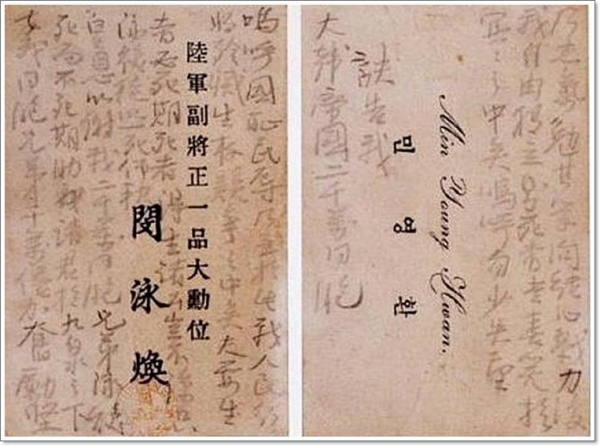 陸軍副將正一品大勳位
閔泳煥
嗚呼國恥民辱乃至於此我人民行
將殄滅生存競爭之中矣夫要生
者必死期死者得生諸公豈不諒只
泳煥徒以一死仰報
皇恩以謝我二千萬同胞兄弟泳煥
死而不死期助諸君於九泉之下
幸我同胞兄弟千萬億加奮勵堅
Min Young Hwan.
민영환
乃志氣勉其學問結心戮力復
我自由獨立則死者當喜笑於
冥冥之中矣嗚呼勿少失望
訣告我
大韓帝國二千萬同胞